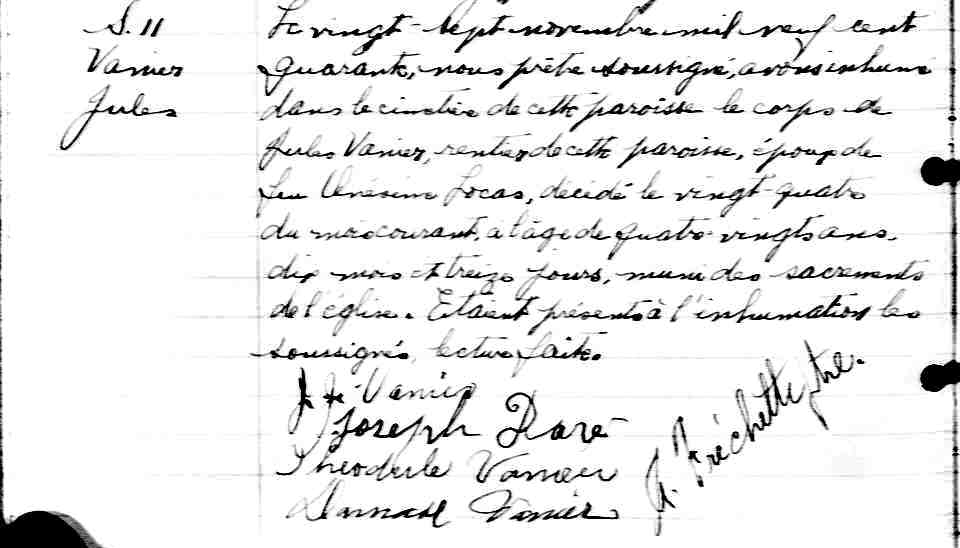 S. 11
Vanier
Jules
Le vingt-sept novembre mil neuf cent
quarante, nous prêtre soussigné, avons inhumé
dans le cimetière de cette paroisse le corps de
Jules Vanier, rentier de cette paroisse, époux de
feu Onésime Locas, décédé le vingt-quatre
du mois courant, à l'âge de quatre-vingts ans,
dix mois et treize jours, muni des sacrements
de l'église. Étaient présents à l'inhumation les
soussignés, lecture faite.
Vanier
Joseph Daré
Théodule Vanier
Damase Vanier
Fréchette, ptre.